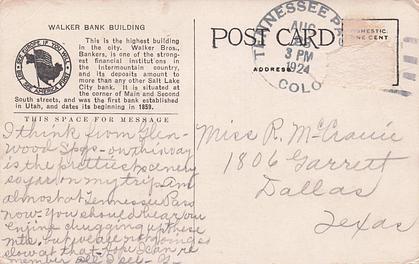 WALKER BANK BUILDING
This is the highest building
in the city. Walker Bros.,
Bankers, is one of the strong-
est financial institutions in
the Intermountain country,
and its deposits amount to
more than any other Salt Lake
City bank. It is situated
at the corner of Main and Second
South streets, and was the first bank established
in Utah, and dates its beginning in 1859.
SEE EUROPE IF YOU WILL
BUT SEE AMERICA FIRST
THIS SPACE FOR MESSAGE
I think from Glen-
wood Spgs - on this way
is the prettiest scenery
so far on my trip. Am
almost at Tennessee Pass
now. You should hear our
engine chugging up these
mts. but we are not going
slow at that.
member
POST CARD
ADDRESS
DOMESTIC.
ONE CENT
TENNESSEE PASS
AUG
3 PM
1924
COLO.
Miss R.
1806 Garrett
Dallas
Texas